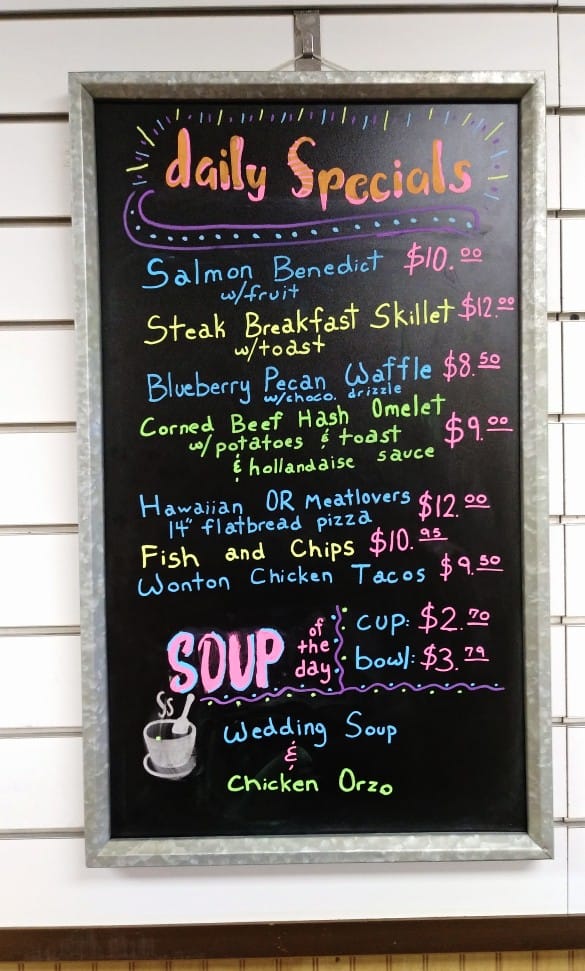 daily Specials
Salmon Benedict $10.00
w/fruit
Steak Breakfast Skillet $12.00
w/toast
Blueberry Pecan Waffle $8.50
w/choco. drizzle
Corned Beef Hash Omelet
w/potatoes & toast $9.00
& hollandaise sauce
Hawaiian OR Meatlovers $12.00
14" flatbread pizza
Fish and Chips $10.95
Wonton Chicken Tacos $9.50
SOUP of the day
cup: $2.70
bowl: $3.79
Wedding Soup
&
Chicken Orzo